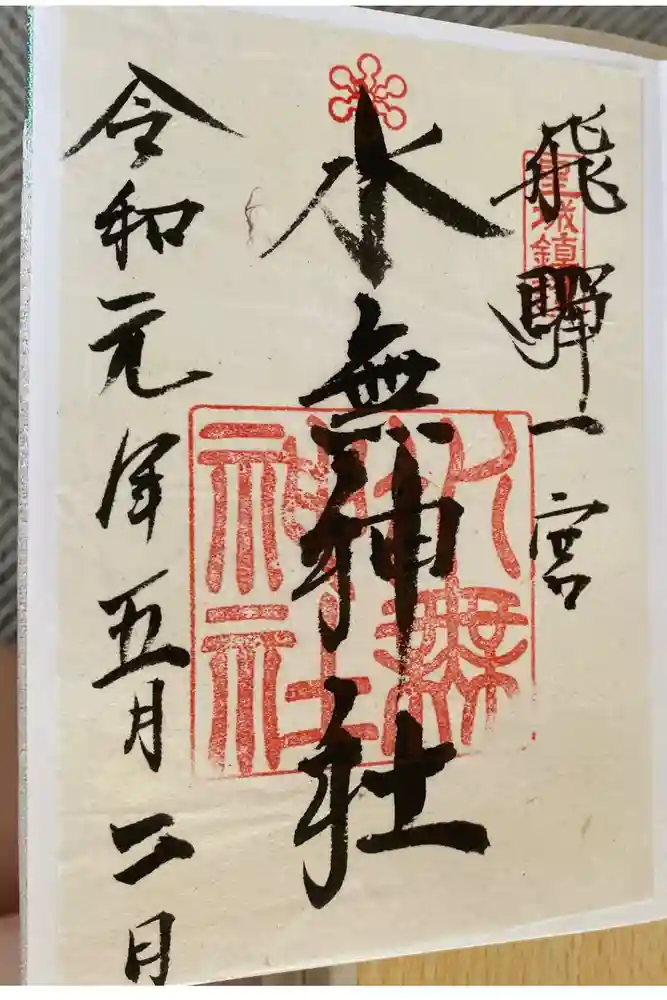 飛騨一宮
水無神社
水無神社
令和元年五月二日